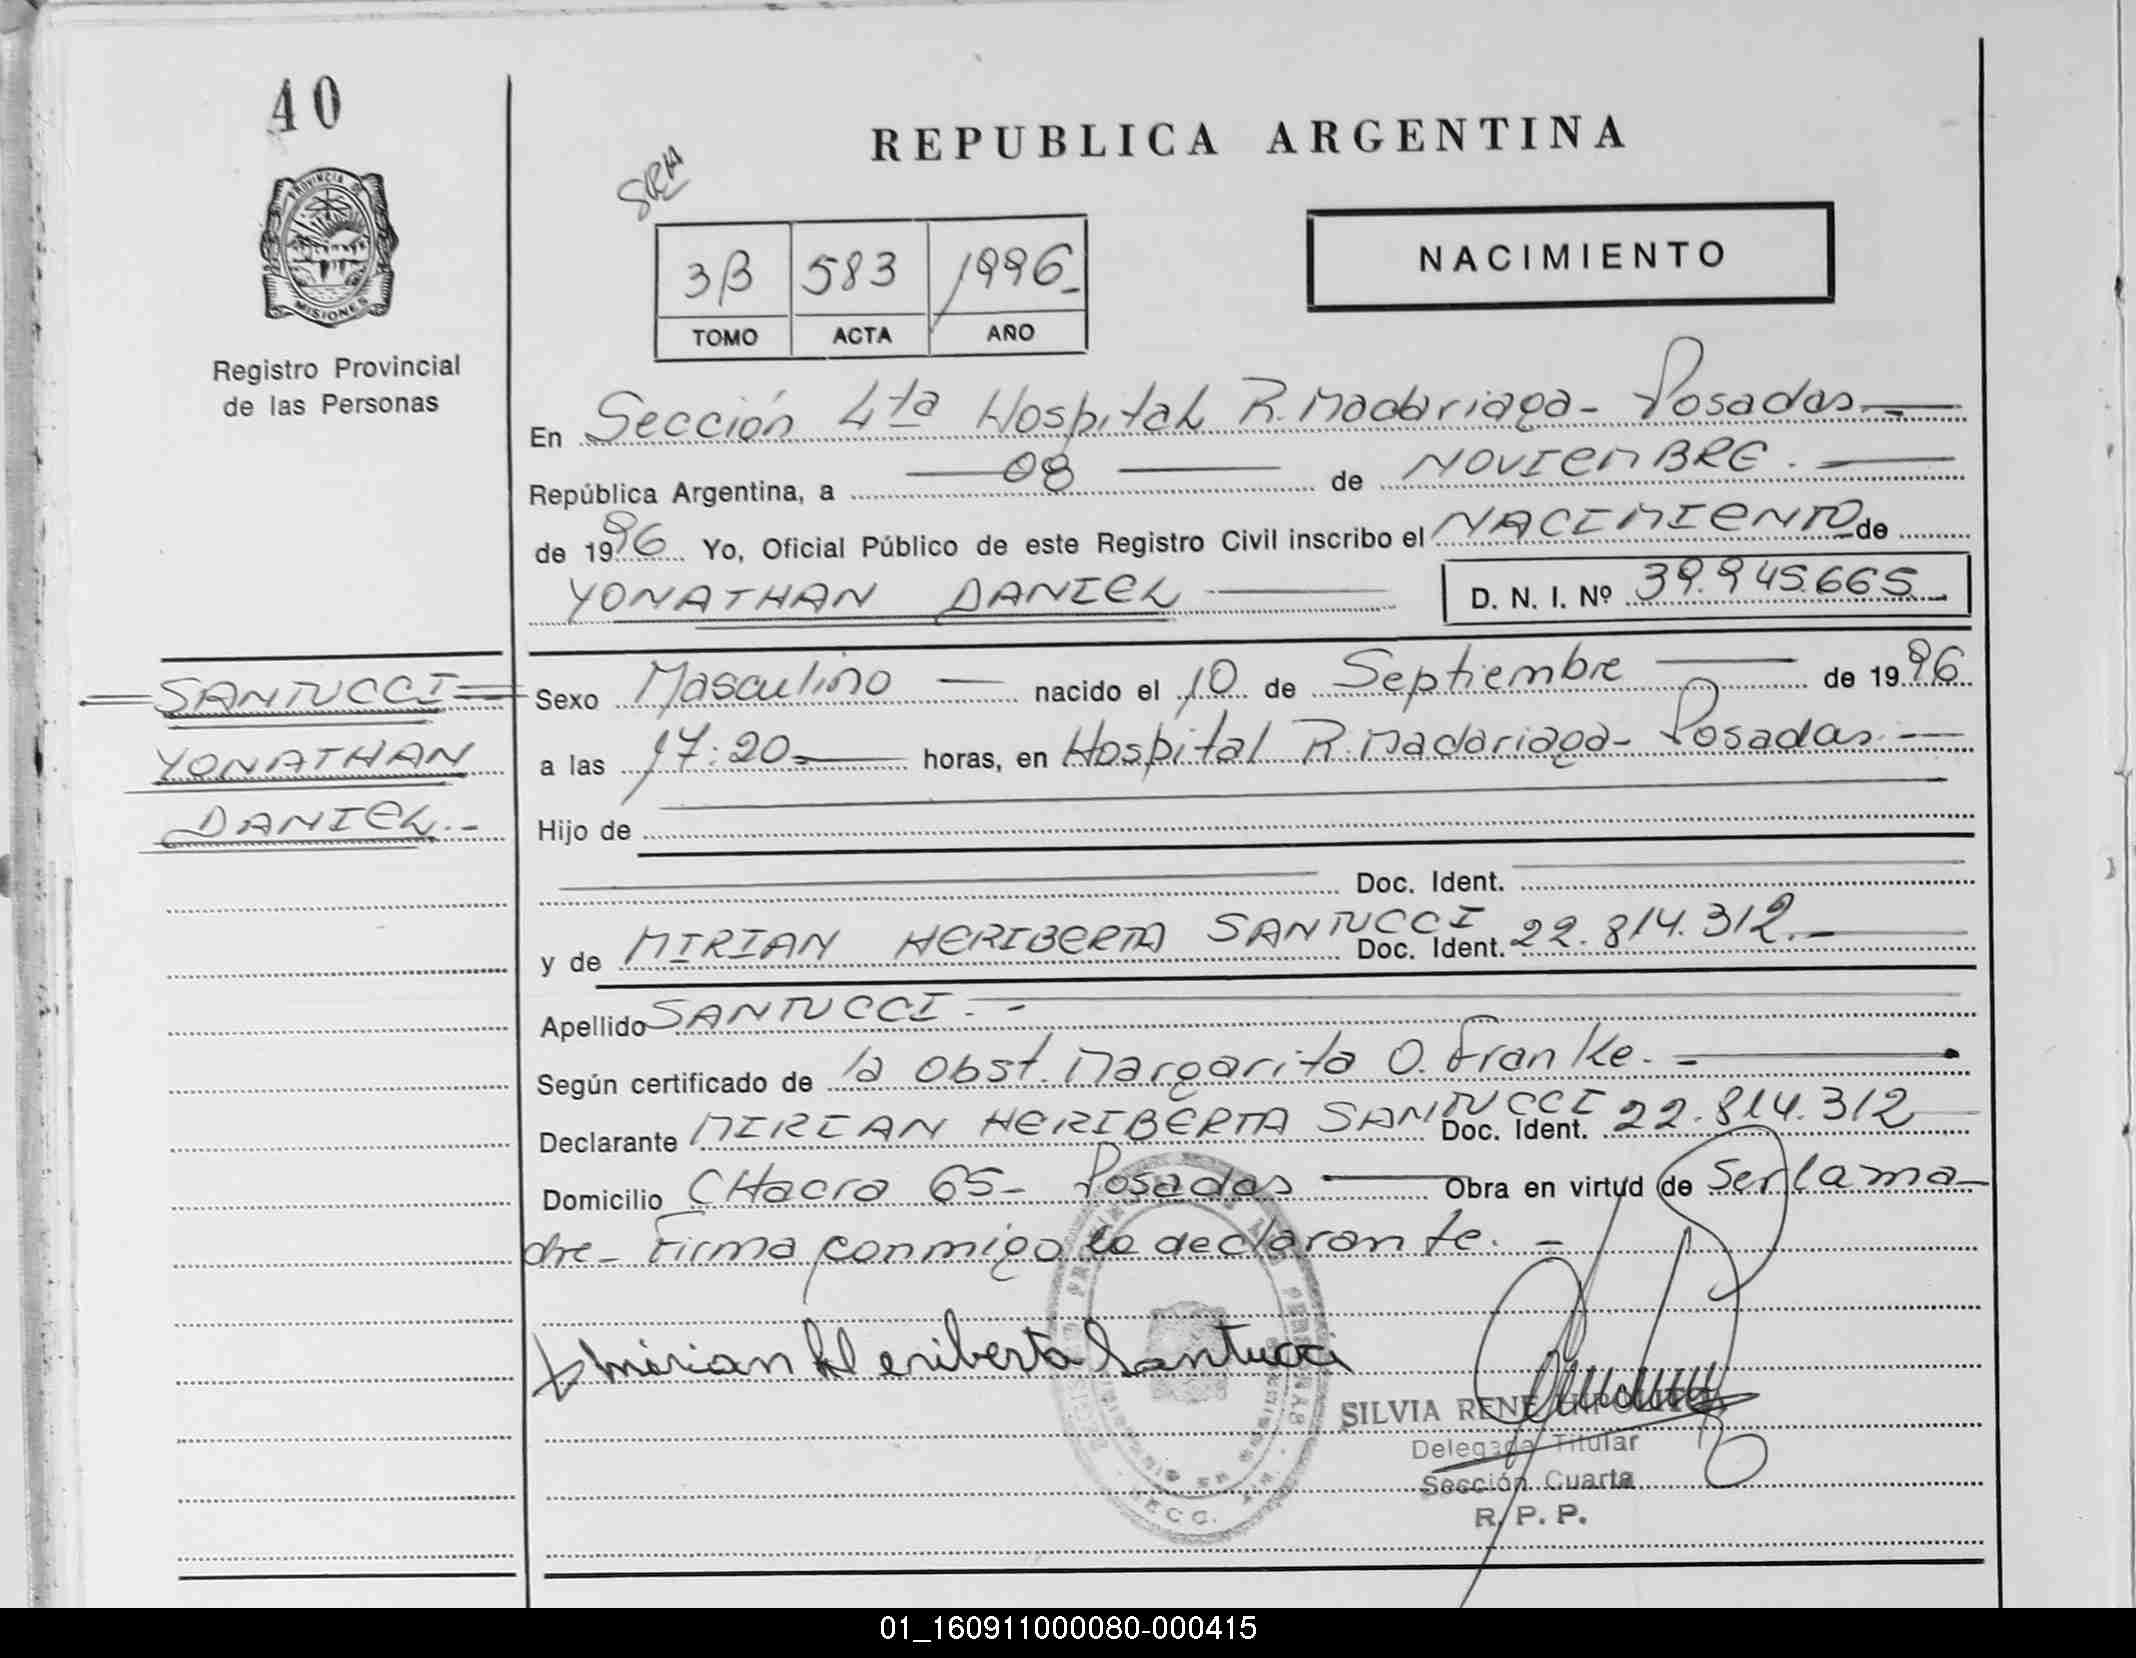 40
REPUBLICA ARGENTINA
SRH
PROVINCIA DE
MISIONES
Registro Provincial
de las Personas
3B 583 1996
TOMO ACTA AÑO
NACIMIENTO
En Sección 4ta Hospital R. Madariaga - Posadas
República Argentina, a 08 de NOVIEMBRE.
de 1996 Yo, Oficial Público de este Registro Civil inscribo el NACIMIENTO de
YONATHAN DANIEL D. N. I. Nº 39.945.665
SANTUCCI
YONATHAN
DANIEL.-
Sexo Masculino nacido el 10 de Septiembre de 1996
a las 17:20 horas, en Hospital R. Madariaga - Posadas
Hijo de
Doc. Ident.
y de MIRIAN HERIBERTA SANTUCCI Doc. Ident. 22.814.312.-
Apellido SANTUCCI.-
Según certificado de la Obst. Margarita O. Franke.-
Declarante MIRIAN HERIBERTA SANTUCCI Doc. Ident. 22.814.312
Domicilio CHacra 65 - Posadas Obra en virtud de Ser la ma-
dre - Firma conmigo la declarante.-
Mirian Heriberta Santucci
SILVIA RENE
Delegada Titular
Sección Cuarta
R. P. P.
01_160911000080-000415